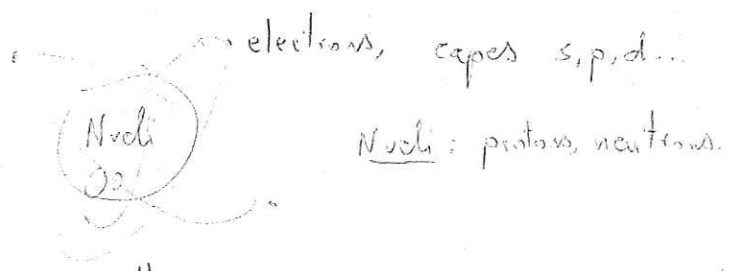 electrons, capes s,p,d...
Nucli
Nucli: protons, neutrons.